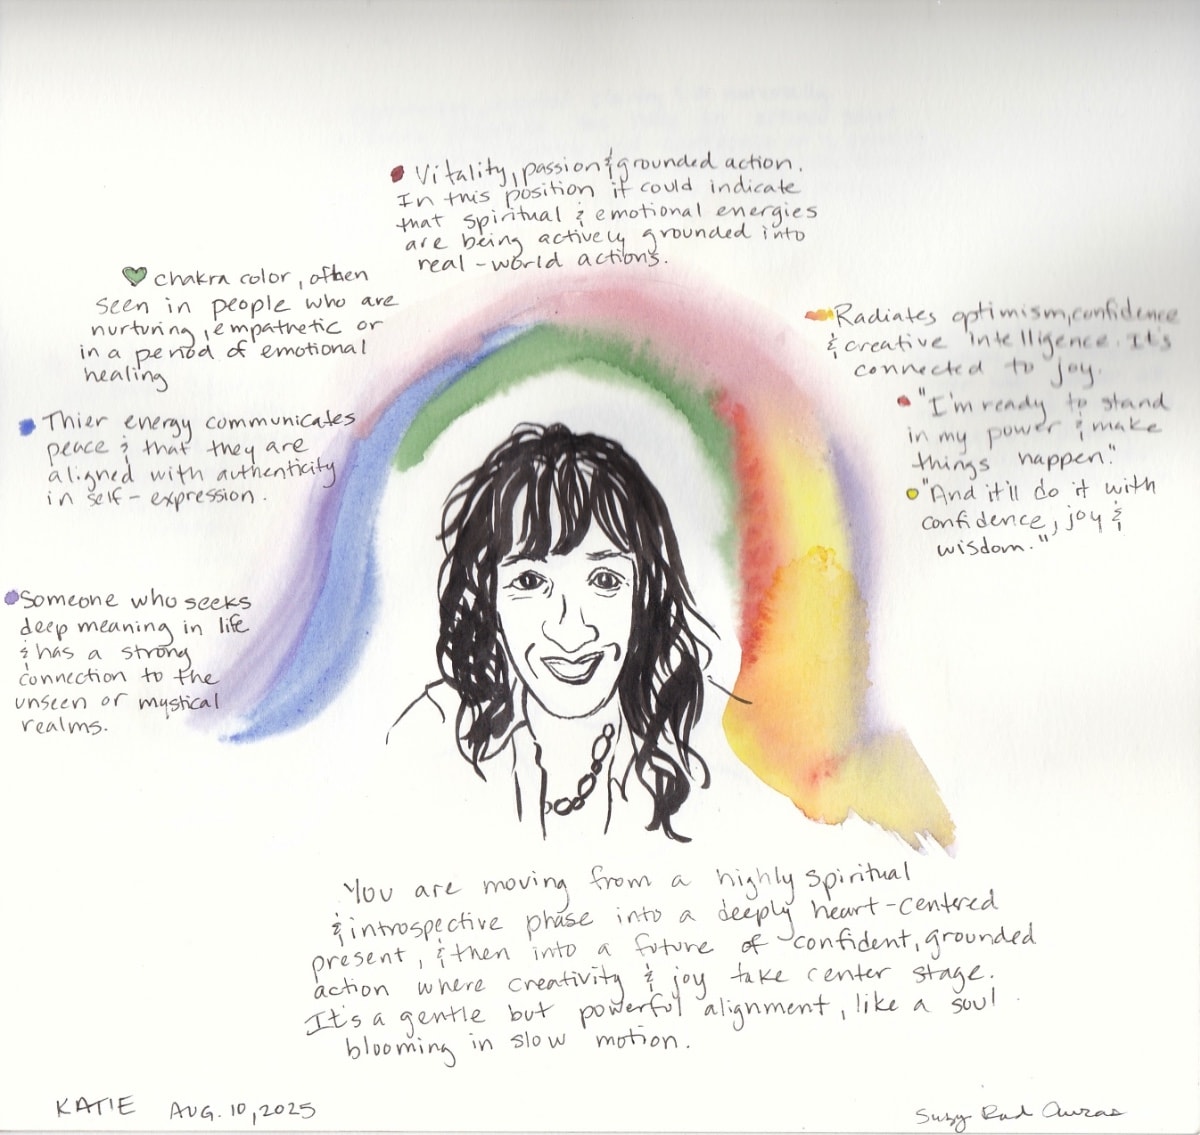 Vitality, passion & grounded action.
In this position it could indicate
that spiritual & emotional energies
are being actively grounded into
real-world actions.
chakra color, often
seen in people who are
nurturing, empathetic or
in a period of emotional
healing
Thier energy communicates
peace & that they are
aligned with authenticity
in self-expression.
Someone who seeks
deep meaning in life
& has a strong
connection to the
unseen or mystical
realms.
Radiates optimism, confidence
& creative intelligence. It's
connected to joy.
"I'm ready to stand
in my power & make
things happen."
"And it'll do it with
confidence, joy &
wisdom."
You are moving from a highly spiritual
& introspective phase into a deeply heart-centered
present, & then into a future of confident, grounded
action where creativity & joy take center stage.
It's a gentle but powerful alignment, like a soul
blooming in slow motion.
KATIE AUG. 10, 2025
Suzy Rad Auras